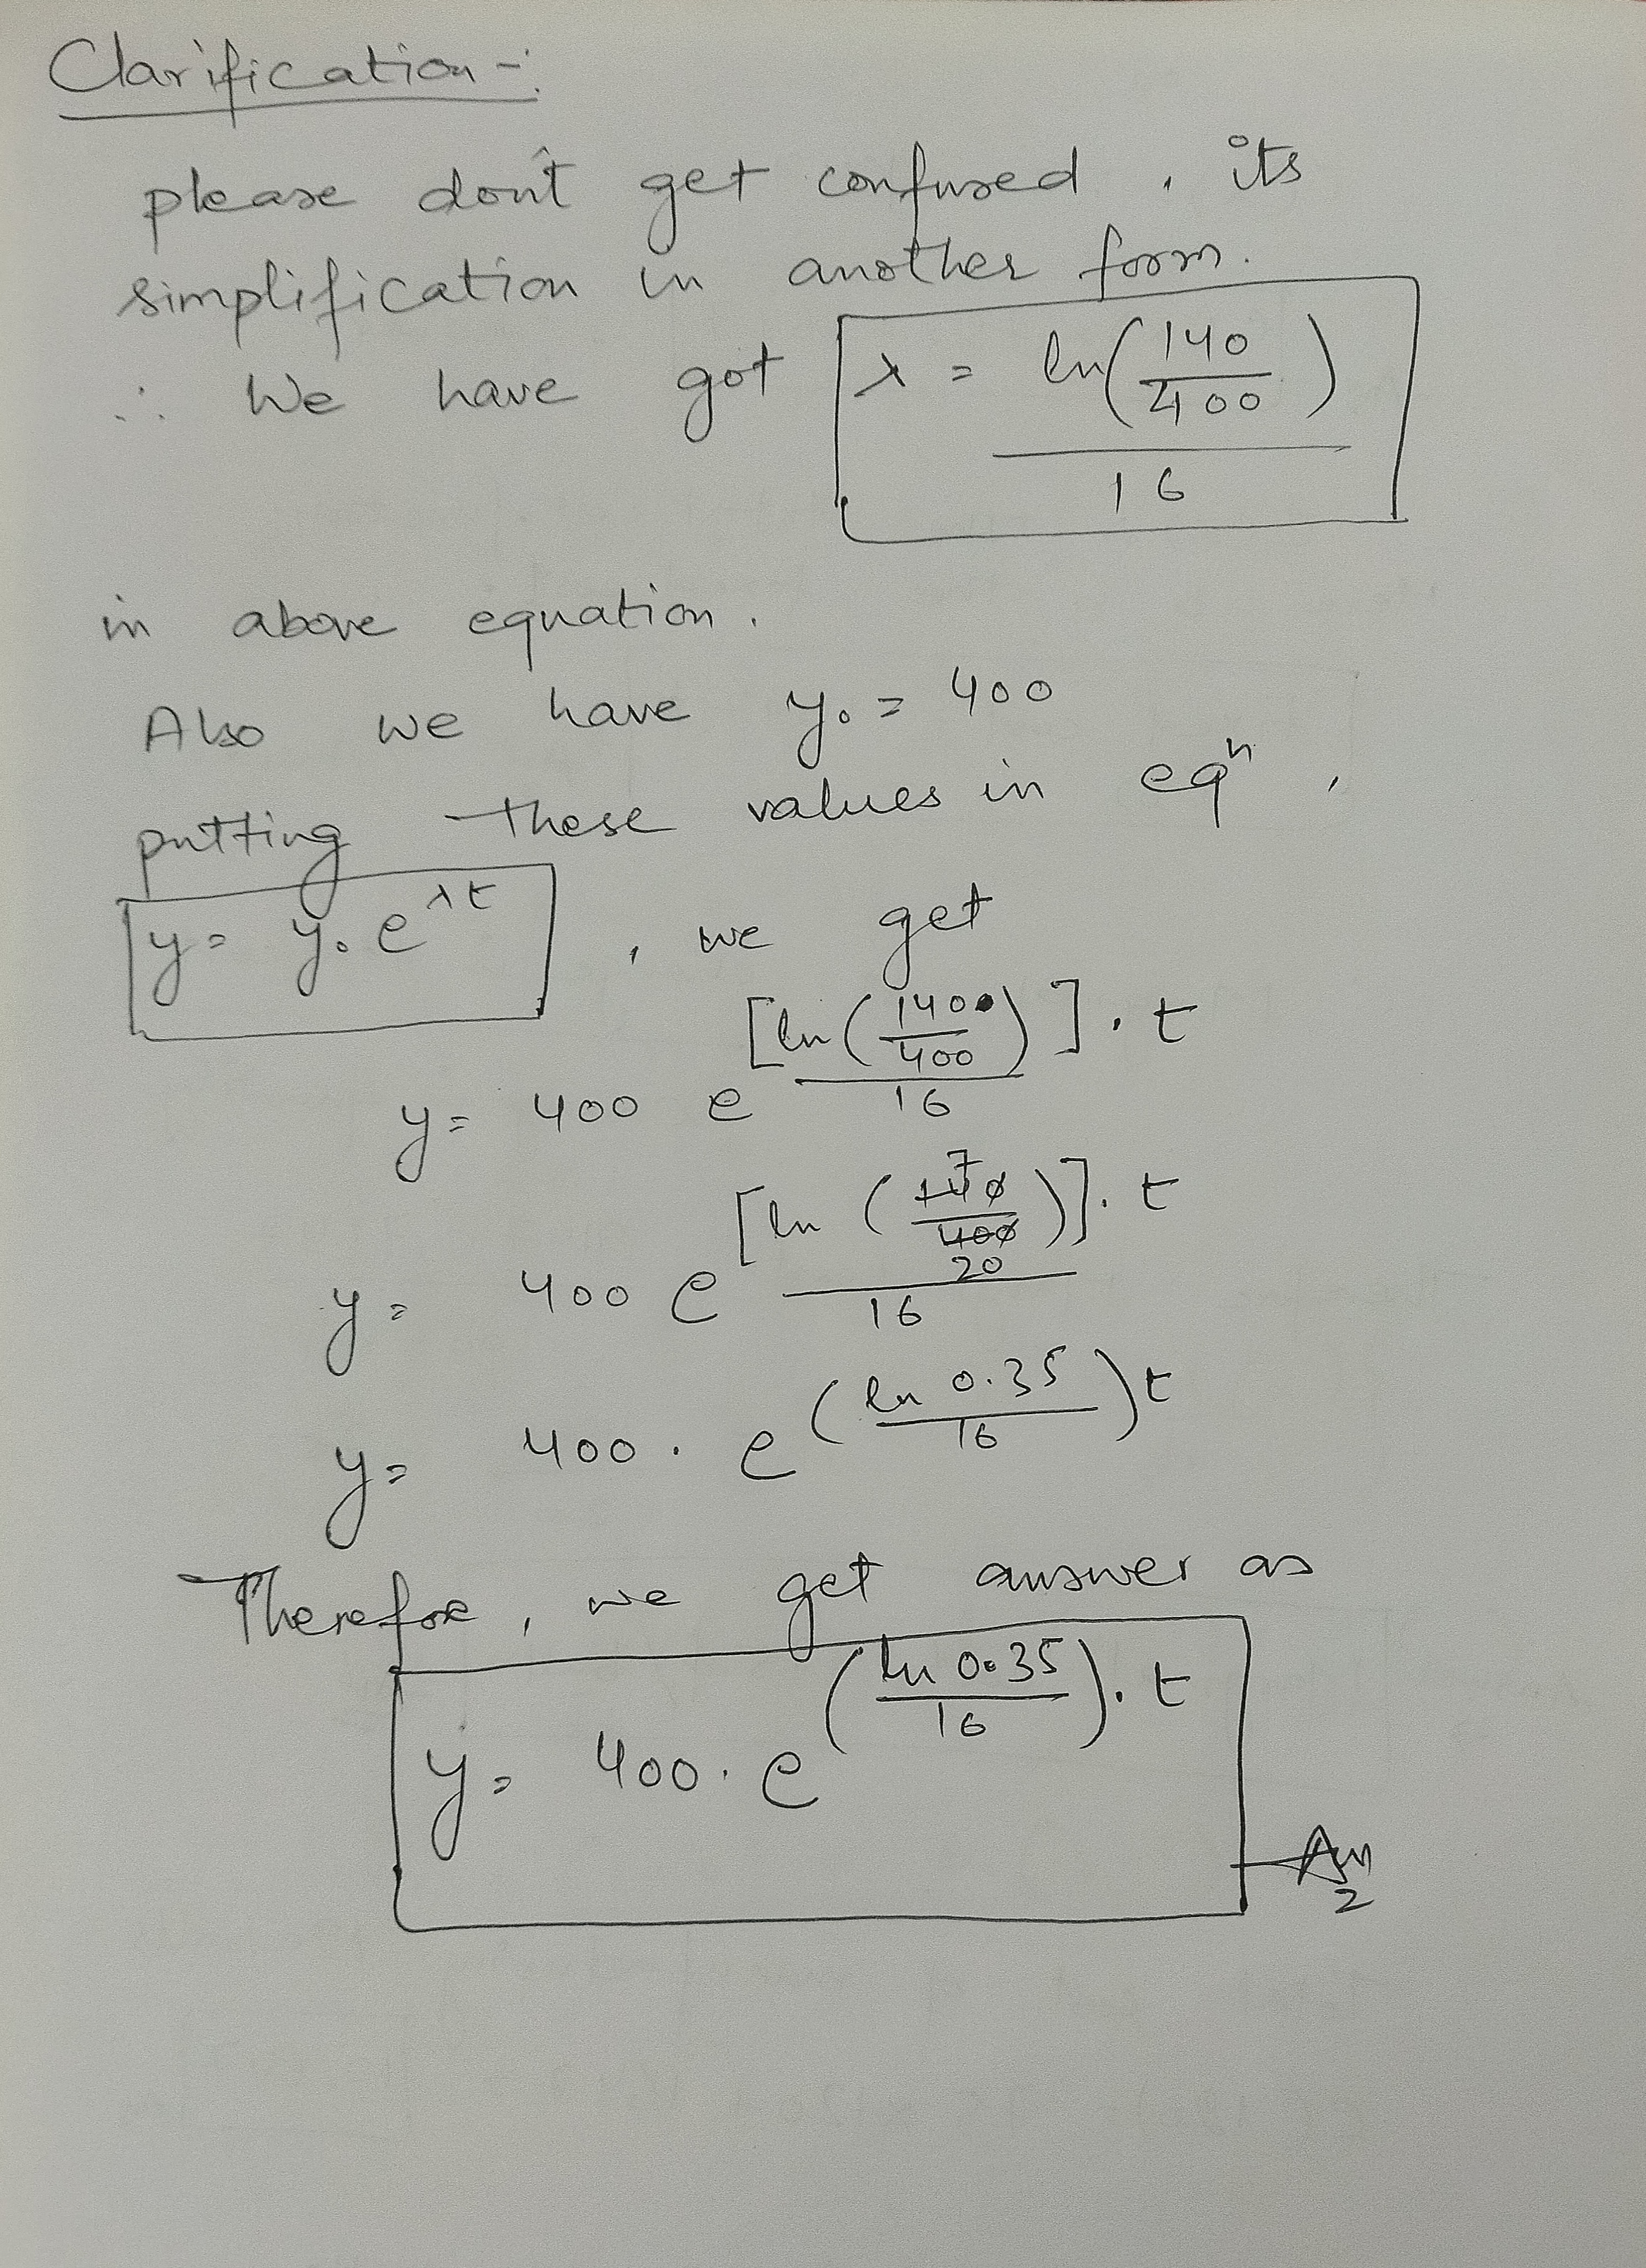 Clarification -:
please don't get confused, its
simplification in another form.
∴ We have got λ = ln(140/400)/16
in above equation.
Also we have y₀ = 400
putting these values in eqⁿ,
y = y₀ e^λt , we get
y = 400 e^[ln(140/400)]/16 . t
y = 400 e^[ln(140/400)]/16 . t 7 20
y = 400 . e^(ln 0.35/16)t
Therefore, we get answer as
y = 400 . e^(ln 0.35/16) . t
Ans